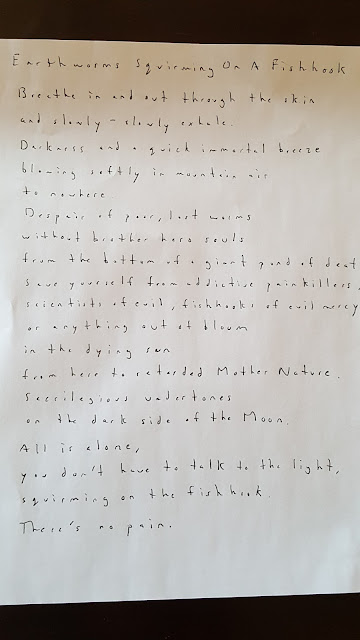 Earthworms Squirming On A Fishhook
Breathe in and out through the skin
and slowly – slowly exhale.
Darkness and a quick immortal breeze
blowing softly in mountain air
to nowhere.
Despair of poor, lost worms
without brother hero souls
from the bottom of a giant pond of death
Save yourself from addictive painkillers,
scientists of evil, fishhooks of evil mercy
or anything out of bloom
in the dying sun
from here to retarded Mother Nature.
Sacrilegious undertones
on the dark side of the Moon.
All is alone,
you don't have to talk to the light,
squirming on the fishhook.
There's no pain.